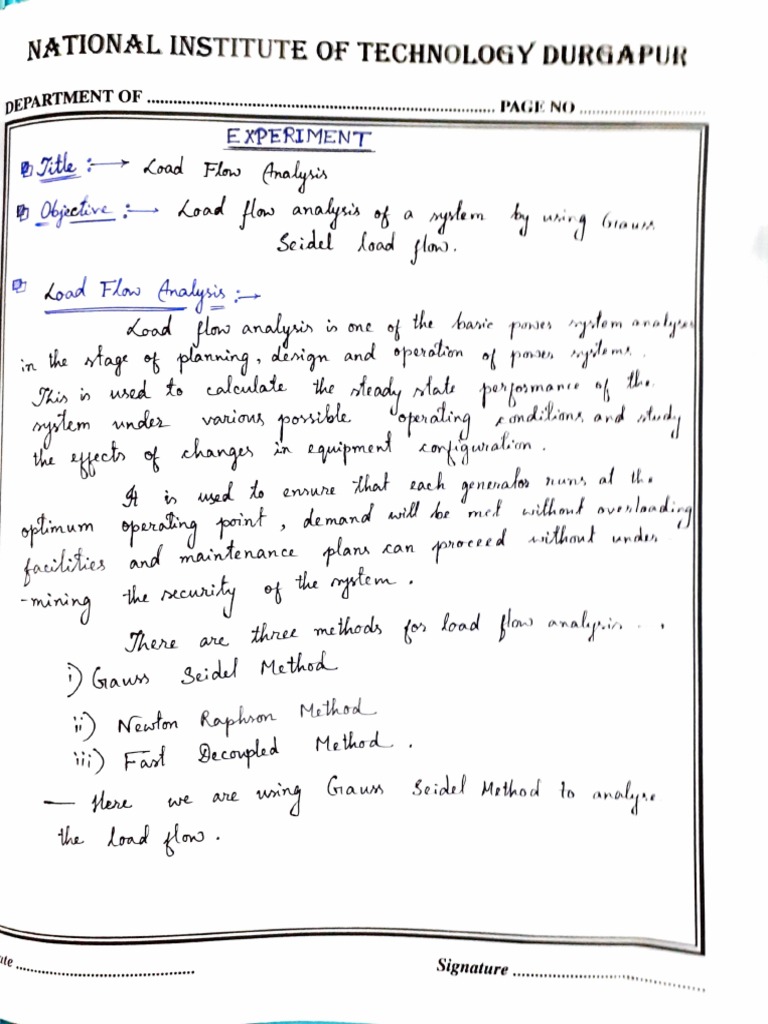 NATIONAL INSTITUTE OF TECHNOLOGY DURGAPUR
DEPARTMENT OF ........................ PAGE NO ........................
EXPERIMENT
Title :→ Load Flow Analysis
Objective :→ Load flow analysis of a system by using Gauss
Seidel load flow.
Load Flow Analysis :→
Load flow analysis is one of the basic power system analyses
in the stage of planning, design and operation of power systems.
This is used to calculate the steady state performance of the
system under various possible operating conditions and study
the effects of changes in equipment configuration.
It is used to ensure that each generator runs at the
optimum operating point, demand will be met without overloading
facilities and maintenance plans can proceed without under
-mining the security of the system.
There are three methods for load flow analysis..
i) Gauss Seidel Method
ii) Newton Raphson Method
iii) Fast Decoupled Method.
— Here we are using Gauss Seidel Method to analyse
the load flow.
ate ........................ Signature ........................